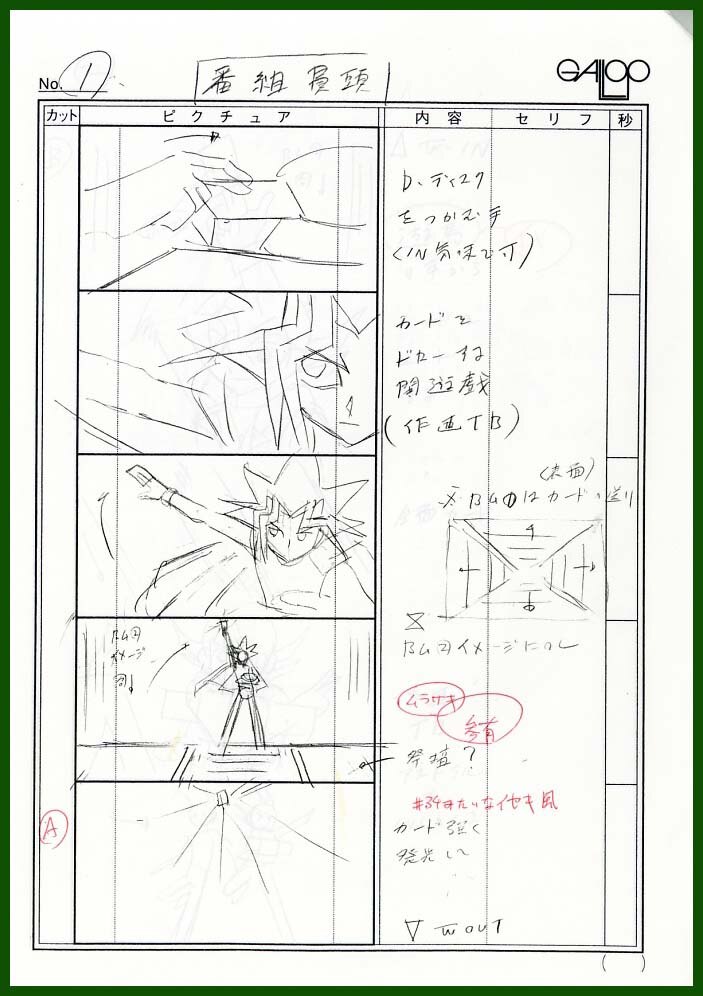 No. 1
番組冒頭
GALLOP
カット ピクチュア 内容 セリフ 秒
D・ディスク
をつかむ手
(IN気味で寸)
カードを
ドローする
闇遊戯
(作画TB)
(画面)
BG①はカード
BG②
イメージ
BG②イメージ
ムラサキ
祭壇?
#34みたいなイセキ風
カード強く
発光して
A
▽ W OUT
( )